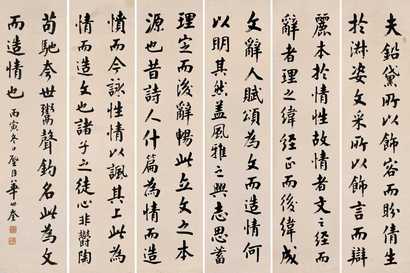 夫鉛黛所以飾而盼倩生
於淑姿文采所以飾言而辯
麗本於情性故情者文之經而
辭者理之緯經正而後緯成
文辭人賦頌為文而造情何
以明其然蓋風雅之興志思蓄
理定而後辭暢此立文之本
源也昔詩人什篇為情而造
憤而今詠性情以諷其上此為
情而造文也諸子之徒心非鬱陶
苟馳夸世鬻聲釣名此為文
而造情也 丙寅冬 華世奎